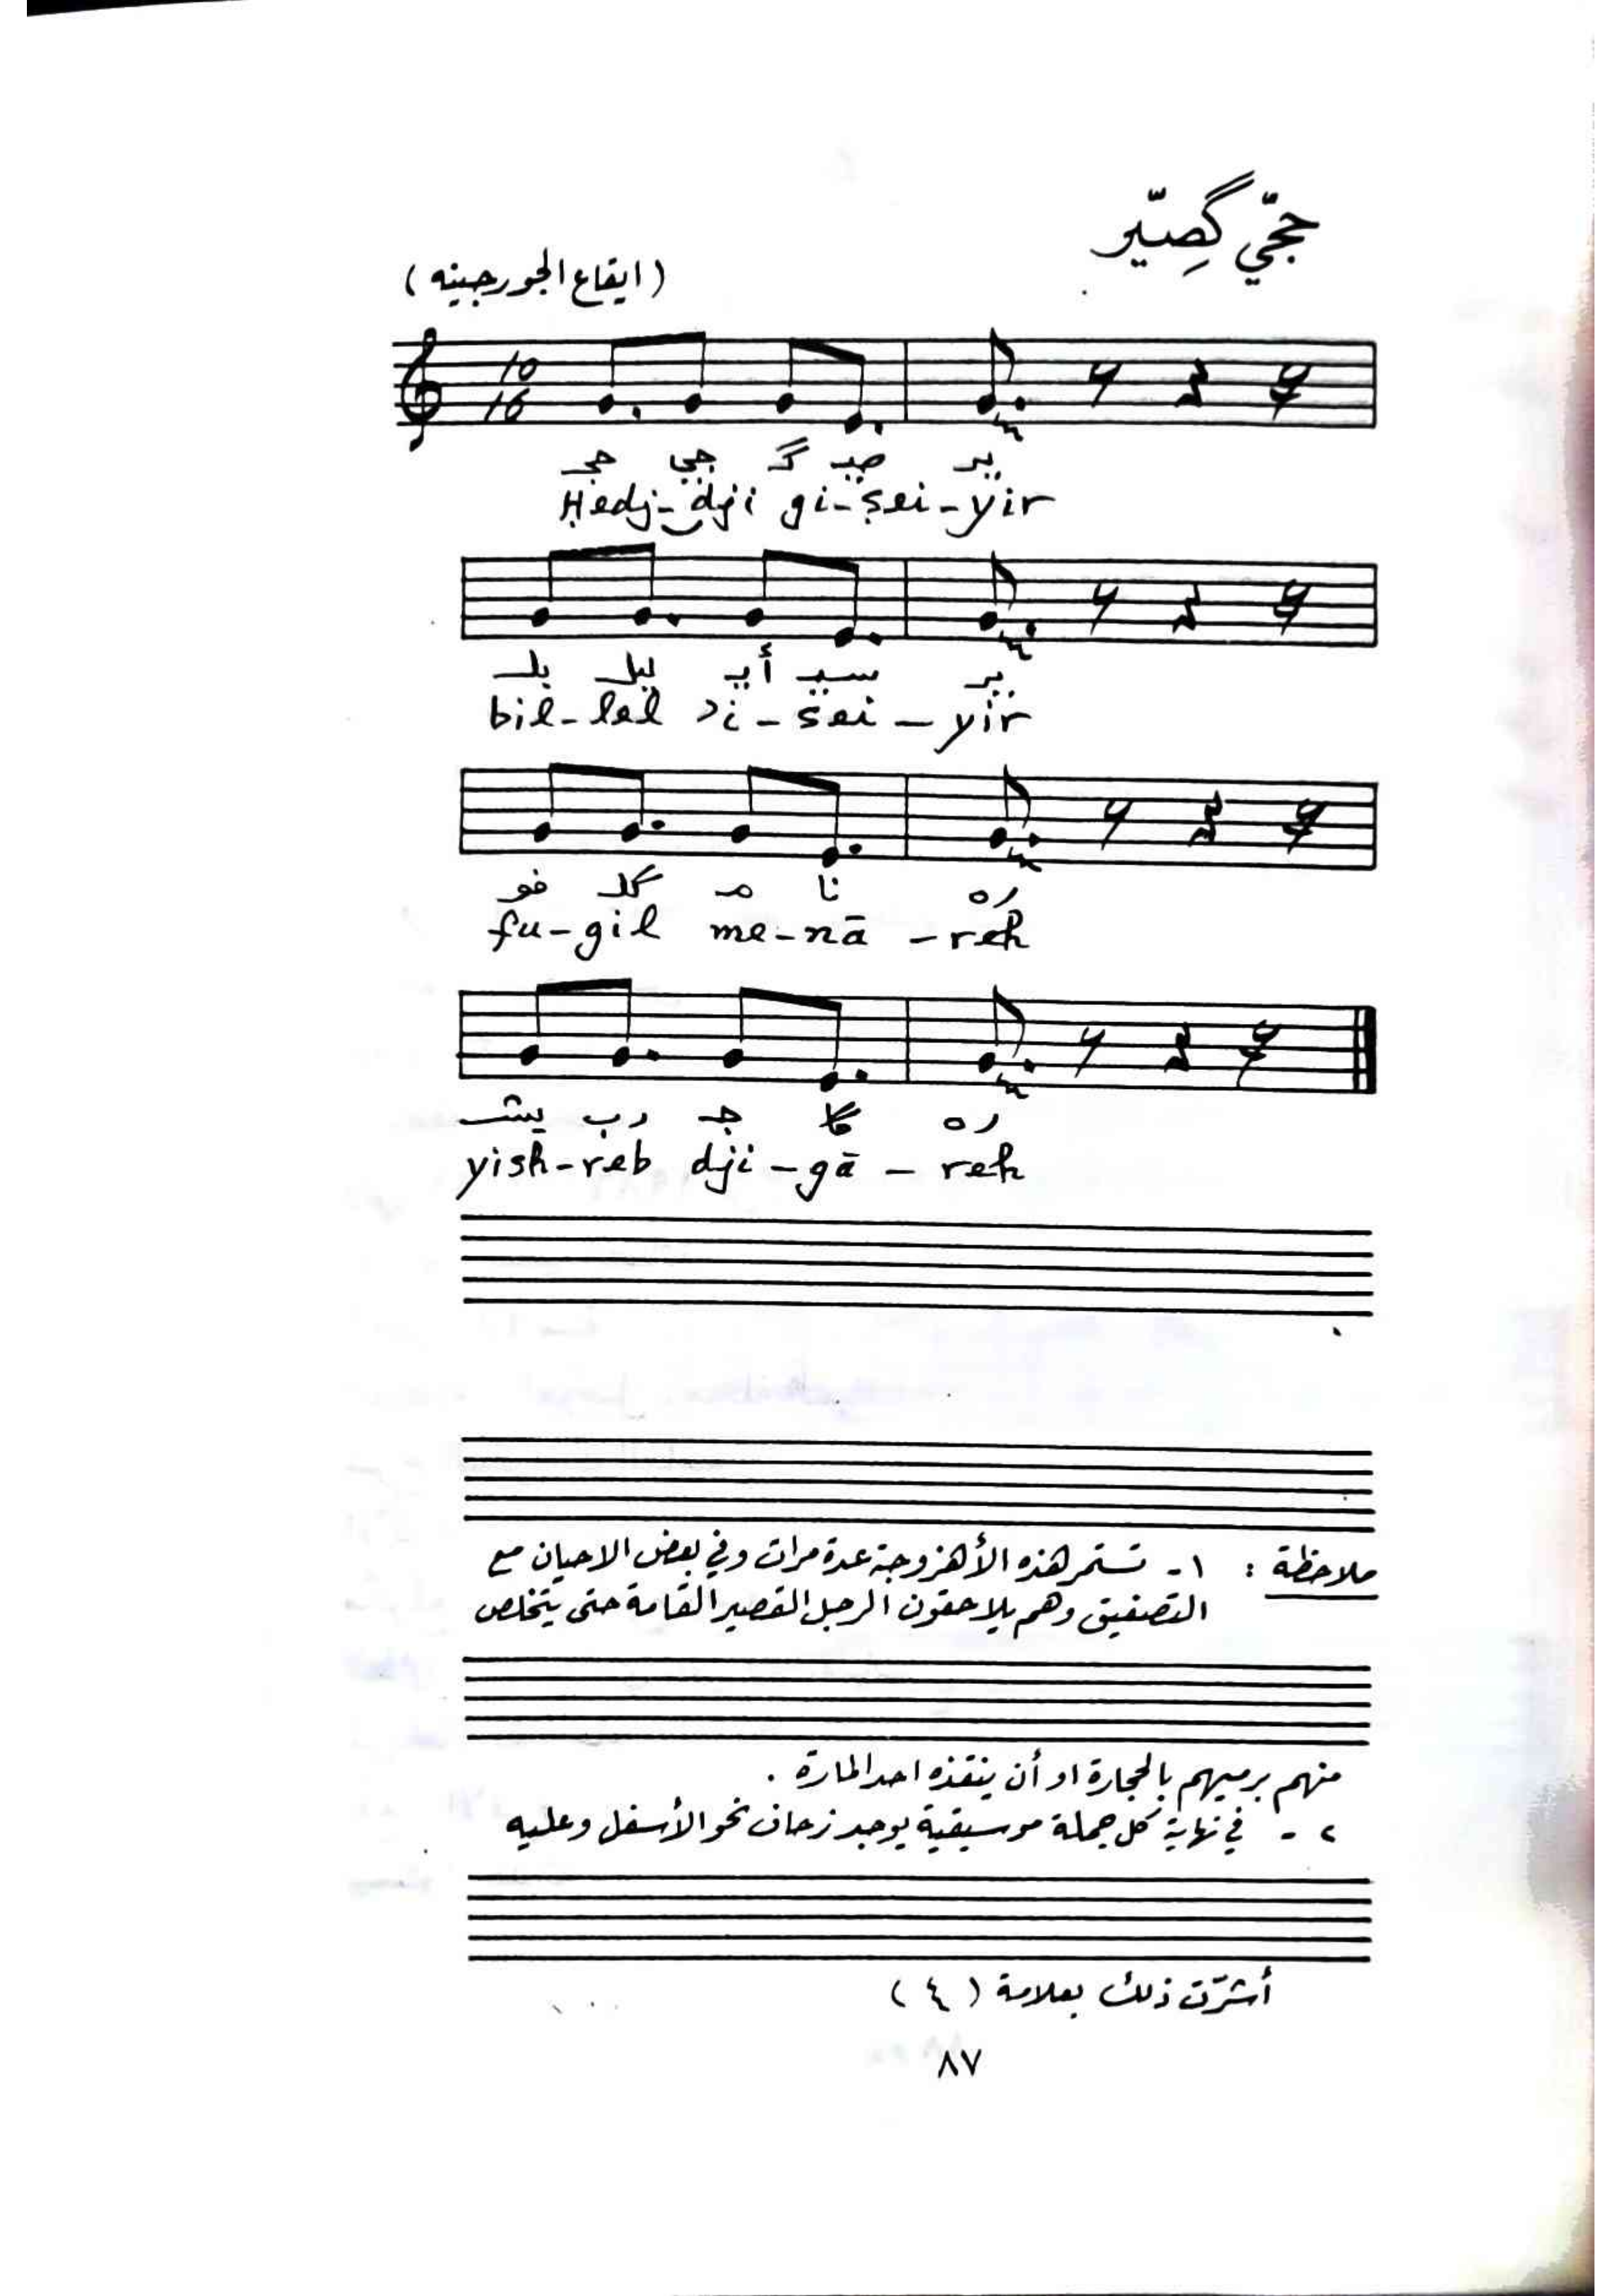 حجّي گصِيّر
(ايقاع الجورجينه)
10
16
حجـ جي گـ صيـ ير
Ḥedj-dji gi-ṣei-yir
بلـ ليل أيـ سيـ ير
bil-lel ʾi-sei-yir
فو گلـ مـ نا ره
fu-gil me-nā-reh
يشـ رب جـ گا ره
yish-reb dji-gā-reh
ملاحظة : ١ - تستمر هذه الأهزوجة عدة مرات وفي بعض الاحيان مع
التصفيق وهم يلاحقون الرجل القصير القامة حتى يتخلص
منهم برميهم بالحجارة او أن ينقذه احد المارة .
٢ - في نهاية كل جملة موسيقية يوجد زحاف نحو الأسفل وعليه
أشرّت ذلك بعلامة ( ٤ )
٨٧